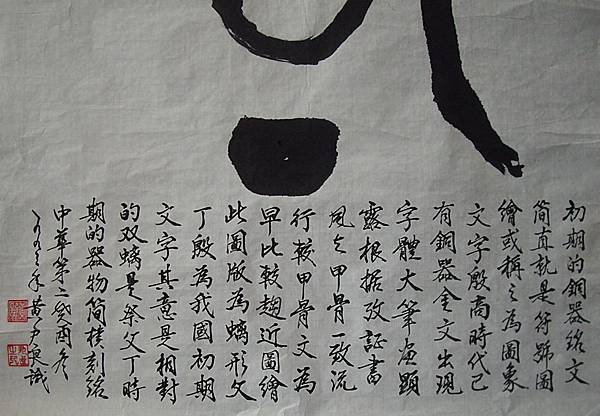 初期的銅器銘文
简直就是符號圖
繪或稱之為圖象
文字殷商時代已
有銅器金文出現
字體大筆畫顯
露根据攷証書
風与甲骨一致流
行較甲骨文為
早比較趨近圖繪
此圖版為螭形父
丁殷為我國初期
文字其意是相對
的双螭是祭父丁時
期的器物简樸刻銘
中華第二癸酉冬
黄 識